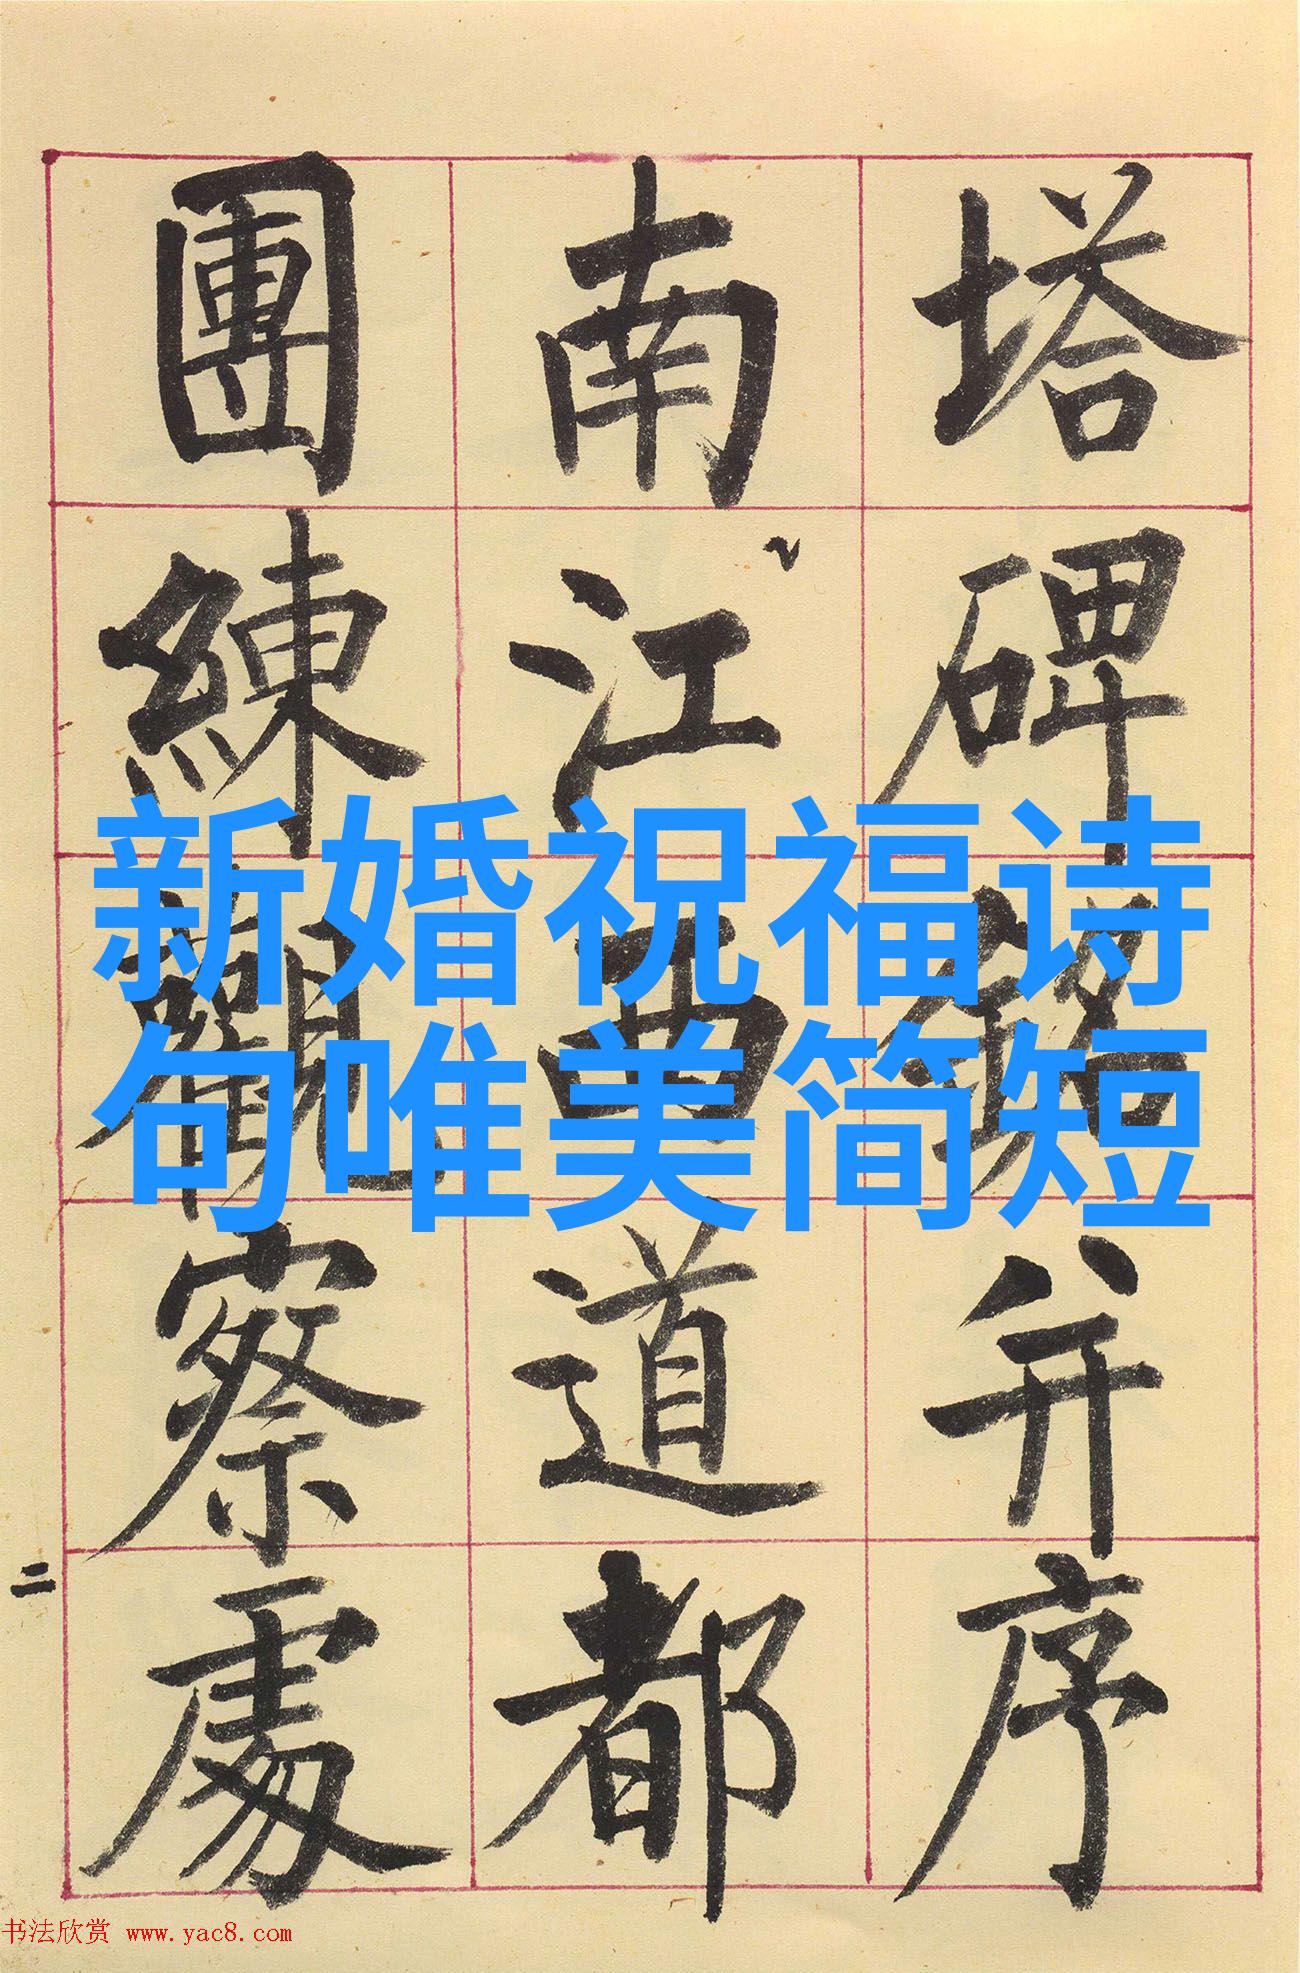 塔碑銘并序
南江西道都
團練觀察處
二
新婚祝福诗
句唯美简短
书法欣赏 www.yac8.com